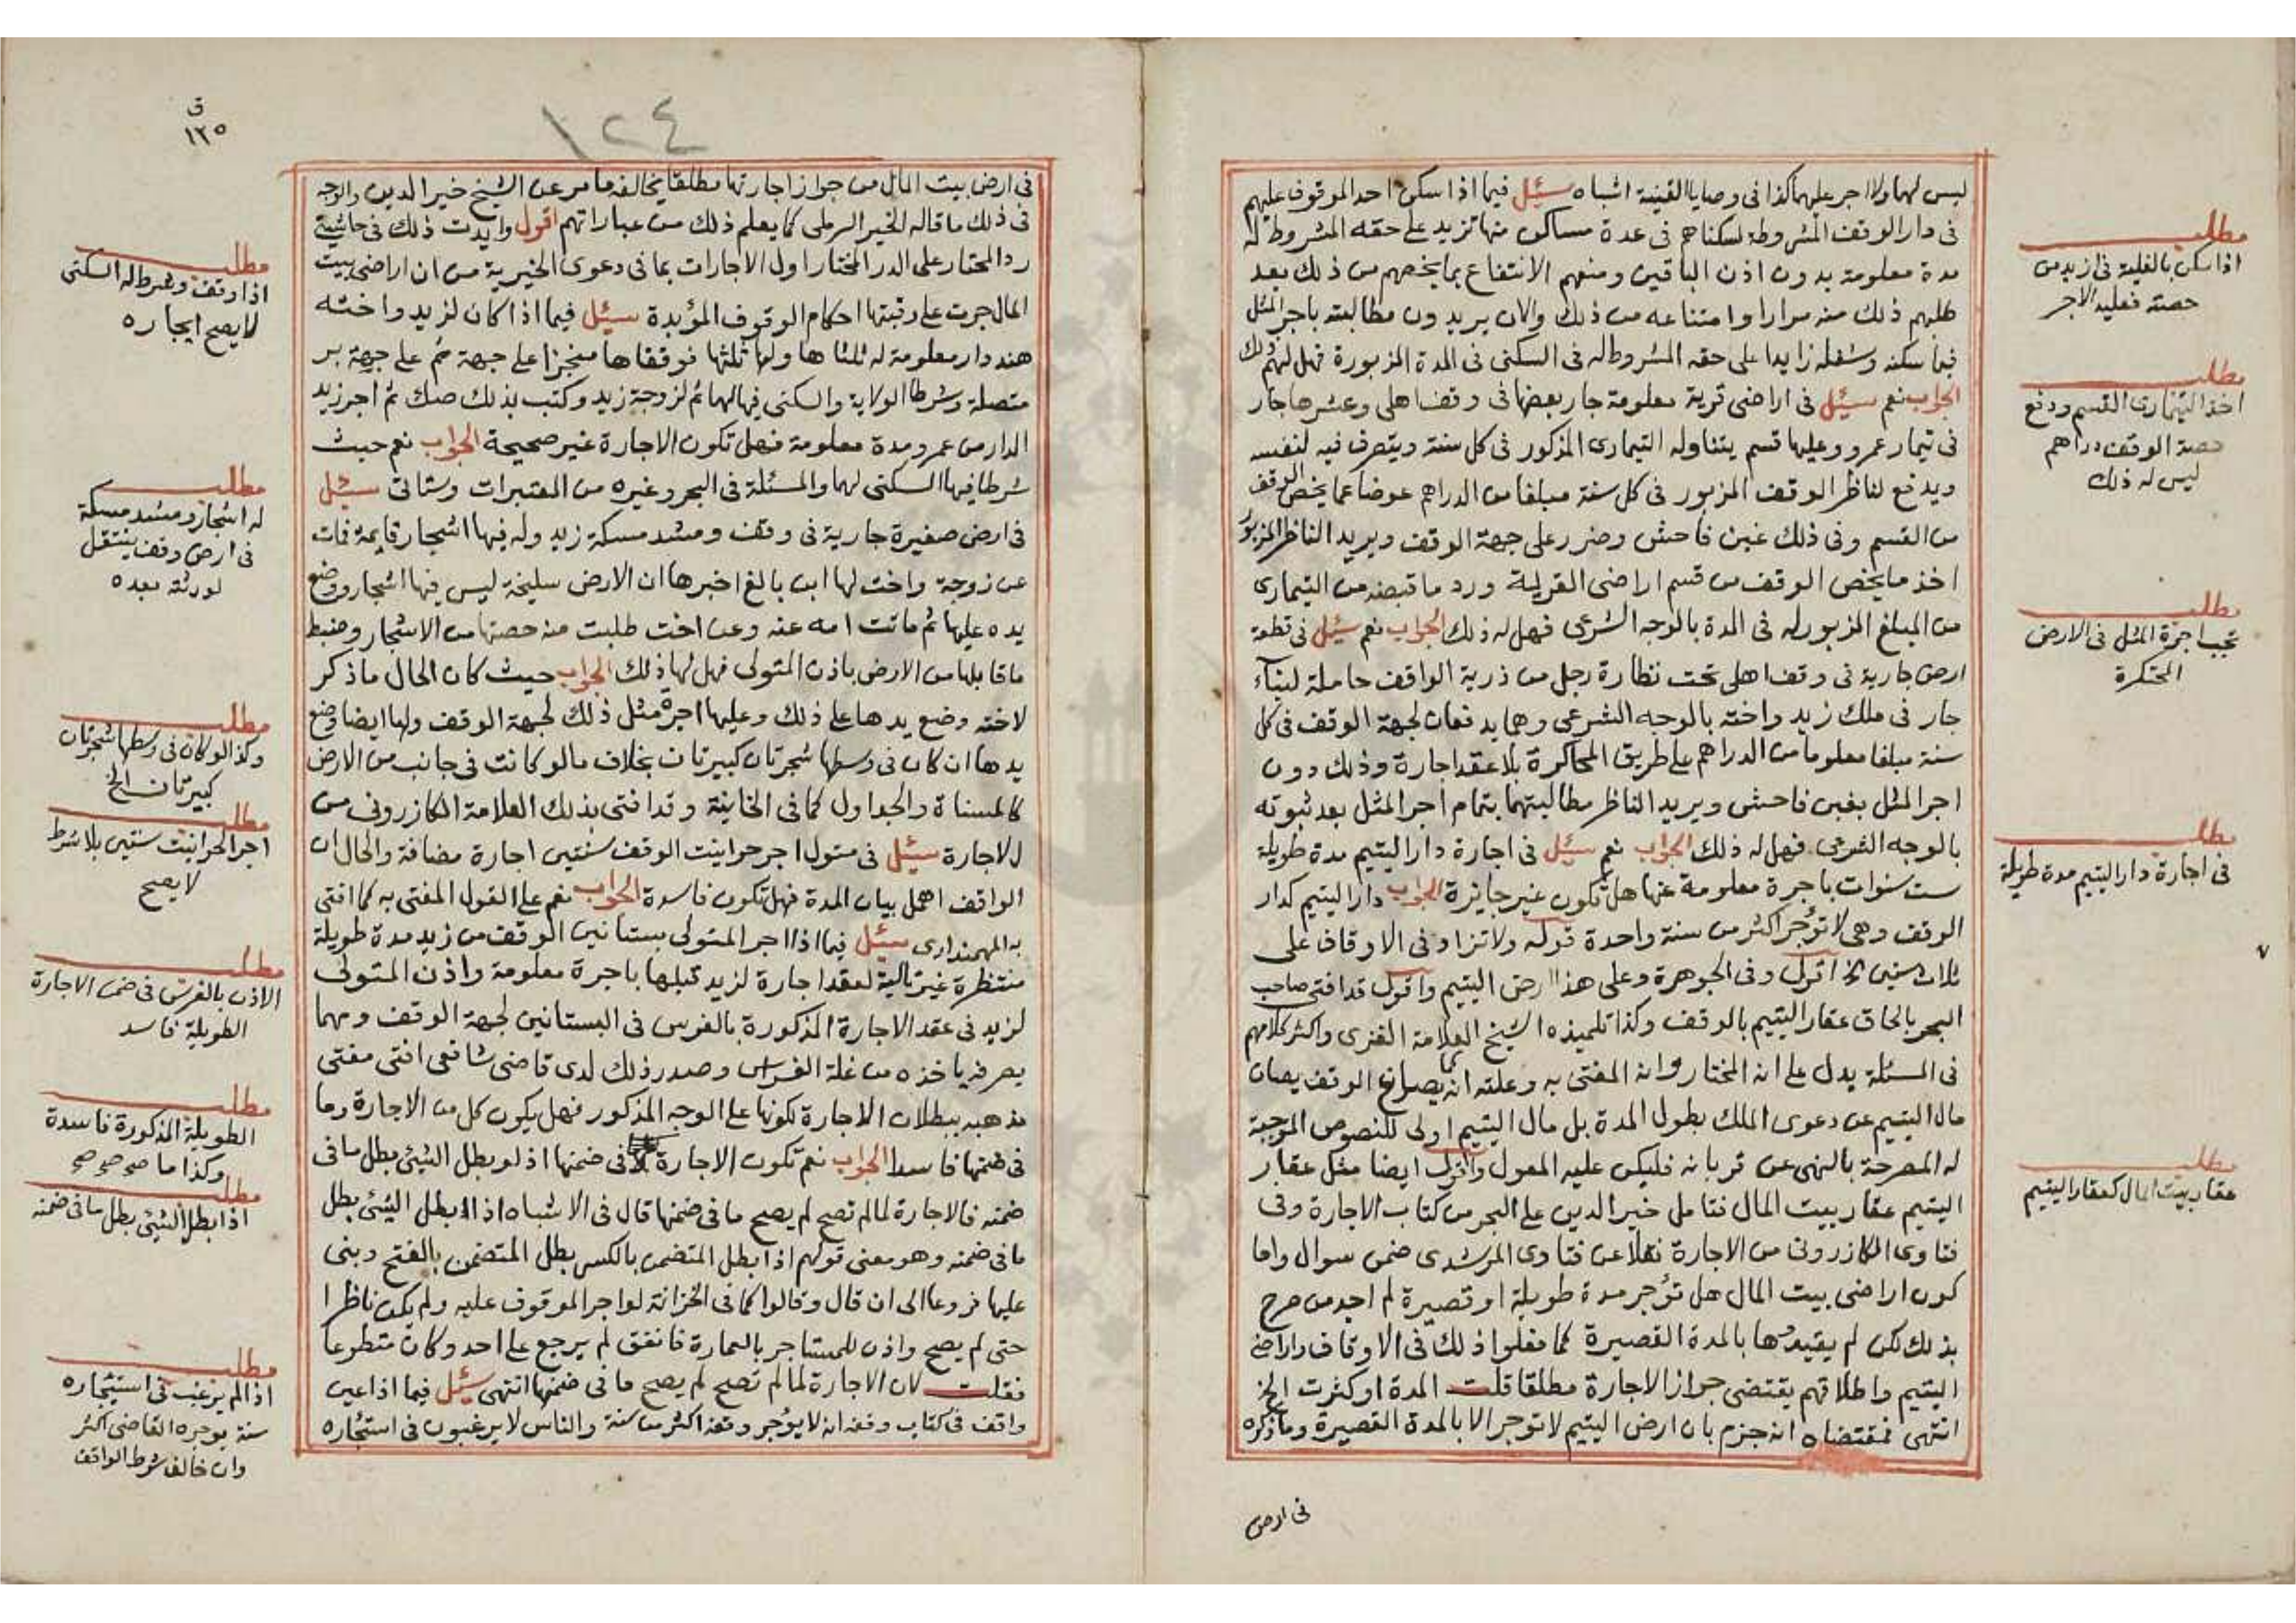 ليس لهما ولا اجر عليهما كذا فى وصايا القنية اشباه سئل فيما اذا سكن احد الموقوف عليهم
فى دار الوقف المشروطة لسكناهم فى عدة مساكن منها تزيد على حقه المشروط له
مدة معلومة بدون اذن الباقين ومنعهم الانتفاع بما يخصهم من ذلك بعد
طلبهم ذلك منه مرارا وامتناعه من ذلك والان يريدون مطالبته باجر المثل
فيما سكنه وشغله زايدا على حقه المشروط له فى السكنى فى المدة المزبورة فهل لهم ذلك
الجواب نعم سئل فى اراضى قرية معلومة جار بعضها فى وقف اهلى وعشرها جار
فى تيمار عمرو وعليها قسم يتناوله التيمارى المذكور فى كل سنة ويتصرف فيه لنفسه
ويدفع لناظر الوقف المزبور فى كل سنة مبلغا من الدراهم عوضا عما يخص الوقف
من القسم وفى ذلك غبن فاحش وضرر على جهة الوقف ويريد الناظر المزبور
اخذ ما يخص الوقف من قسم اراضى القرية ورد ما قبضه من التيمارى
من المبلغ المزبور له فى المدة بالوجه الشرعى فهل له ذلك الجواب نعم سئل فى قطعة
ارض جارية فى وقف اهلى تحت نظارة رجل من ذرية الواقف حاملة لبناء
جار فى ملك زيد واخته بالوجه الشرعى وهما يدفعان لجهة الوقف فى كل
سنة مبلغا معلوما من الدراهم على طريق المحاكرة بلا عقد اجارة وذلك دون
اجر المثل بغبن فاحش ويريد الناظر مطالبتهما بتمام اجر المثل بعد ثبوته
بالوجه الشرعى فهل له ذلك الجواب نعم سئل فى اجارة دار اليتيم مدة طويلة
ست سنوات باجرة معلومة عنها هل تكون غير جايزة الجواب دار اليتيم كدار
الوقف وهى لا تؤجر اكثر من سنة واحدة قوله ولا تزاد فى الاوقاف على
ثلاث سنين الخ اقول وفى الجوهرة وعلى هذا ارض اليتيم واقول قد افتى صاحب
البحر بالحاق عقار اليتيم بالوقف وكذا تلميذه الشيخ العلامة الغزى واكثر كلامهم
فى المسئلة يدل على انه المختار وانه المفتى به وعلته انه كما يصان الوقف يصان
مال اليتيم عن دعوى الملك بطول المدة بل مال اليتيم اولى للنصوص الموجبة
له المصرحة بالنهى عن قربانه فليكن عليه المعول واقول ايضا مثل عقار
اليتيم عقار بيت المال فتامل خير الدين على البحر من كتاب الاجارة وفى
فتاوى الكازرونى من الاجارة نقلا عن فتاوى المرشدى ضمن سوال واما
كون اراضى بيت المال هل تؤجر مدة طويلة او قصيرة لم اجد من صرح
بذلك لكن لم يقيدها بالمدة القصيرة كما فعلوا ذلك فى الاوقاف واراضى
اليتيم واطلاقهم يقتضى جواز الاجارة مطلقا قلت المدة او كثرت الخ
انتهى فمقتضاه انه جزم بان ارض اليتيم لا توجر الا بالمدة القصيرة وما ذكره
فى ارض
مطلب
اذا سكن بالغلبة فى ازيد من
حصته فعليه الاجر
مطلب
اخذ التيمارى القسم ودفع
حصة الوقف دراهم
ليس له ذلك
مطلب
تجب اجرة المثل فى الارض
المحتكرة
مطلب
فى اجارة دار اليتيم مدة طويلة
مطلب
عقار بيت المال كعقار اليتيم
ق
١٢٥
١٢٤
فى ارض بيت المال من جواز اجارتها مطلقا يخالفه ما مر عن الشيخ خير الدين والوجه
فى ذلك ما قاله الخير الرملى كما يعلم ذلك من عباراتهم اقول وايدت ذلك فى حاشيتى
رد المحتار على الدر المختار اول الاجارات بما فى دعوى الخيرية من ان اراضى بيت
المال جرت على رقبتها احكام الوقوف المؤبدة سئل فيما اذا كان لزيد واخته
هند دار معلومة له ثلثاها ولها ثلثها فوقفاها منجزا على جهة ثم على جهة بر
متصلة وشرطا الولاية والسكنى فيها لهما ثم لزوجة زيد وكتب بذلك صك ثم اجر زيد
الدار من عمرو مدة معلومة فهل تكون الاجارة غير صحيحة الجواب نعم حيث
شرطا فيها السكنى لهما والمسئلة فى البحر وغيره من المعتبرات وستاتى سئل
فى ارض صغيرة جارية فى وقف ومشد مسكة زيد وله فيها اشجار قايمة فمات
عن زوجة واخت لها ابن بالغ اخبرها ان الارض سليخة ليس فيها اشجار ووضع
يده عليها ثم ماتت امه عنه وعن اخت طلبت منه حصتها من الاشجار وضبط
ما قابلها من الارض باذن المتولى فهل لها ذلك الجواب حيث كان الحال ما ذكر
لاخته وضع يدها على ذلك وعليها اجرة مثل ذلك لجهة الوقف ولها ايضا وضع
يدها ان كان فى وسطها شجرتان كبيرتان بخلاف ما لو كانت فى جانب من الارض
كالمسناة والجداول كما فى الخانية وقد افتى بذلك العلامة الكازرونى من
الاجارة سئل فى متول اجر حوانيت الوقف سنتين اجارة مضافة والحال ان
الواقف اهمل بيان المدة فهل تكون فاسدة الجواب نعم على القول المفتى به كما افتى
به المهمندارى سئل فيما اذا اجر المتولى بستانين الوقف من زيد مدة طويلة
منتظرة غير تالية لعقد اجارة لزيد قبلها باجرة معلومة واذن المتولى
لزيد فى عقد الاجارة المذكورة بالغرس فى البستانين لجهة الوقف ومهما
يصرفه ياخذه من غلة الغراس وصدر ذلك لدى قاضى شافعى افتى مفتى
مذهبه ببطلان الاجارة لكونها على الوجه المذكور فهل يكون كل من الاجارة وما
فى ضمنها فاسدا الجواب نعم تكون الاجارة فى ضمنها اذ لو بطل الشئ بطل ما فى
ضمنه فالاجارة لما لم تصح لم يصح ما فى ضمنها قال فى الاشباه اذا بطل الشئ بطل
ما فى ضمنه وهو معنى قولهم اذا بطل المتضمن بالكسر بطل المتضمن بالفتح وبنى
عليها فروعا الى ان قال وقالوا كما فى الخزانة لو اجر الموقوف عليه ولم يكن ناظرا
حتى لم يصح واذن للمستاجر بالعمارة فانفق لم يرجع على احد وكان متطوعا
فقلت لان الاجارة لما لم تصح لم يصح ما فى ضمنها انتهى سئل فيما اذا عين
واقف فى كتاب وقفه انه لا يؤجر وقفه اكثر من سنة والناس لا يرغبون فى استئجاره
مطلب
اذا وقف وشرط له السكنى
لا يصح ايجاره
مطلب
له اشجار ومشد مسكة
فى ارض وقف ينتقل
لورثته بعده
مطلب
وكذا لو كان فى وسطها شجرتان
كبيرتان الخ
مطلب
اجر الحوانيت سنتين بلا شرط
لا يصح
مطلب
الاذن بالغرس فى ضمن الاجارة
الطويلة فاسد
مطلب
الطويلة المذكورة فاسدة
وكذا ما صح صح صح
مطلب
اذا بطل الشئ بطل ما فى ضمنه
مطلب
اذا لم يرغب فى استيجاره
سنة يوجره القاضى اكثر
وان خالف شرط الواقف